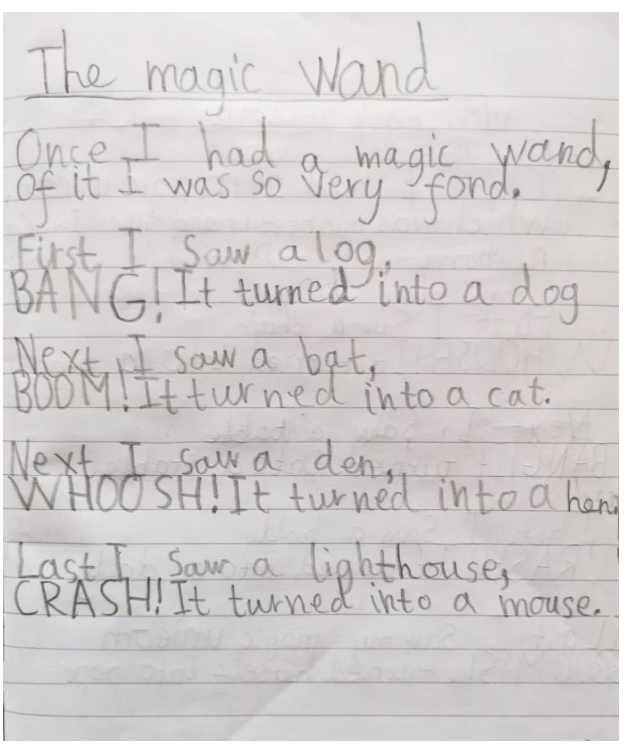 The magic Wand
Once I had a magic wand,
Of it I was so very fond.
First I saw a log,
BANG! It turned into a dog
Next I saw a bat,
BOOM! It turned into a cat.
Next I saw a den,
WHOOSH! It turned into a hen.
Last I saw a lighthouse,
CRASH! It turned into a mouse.